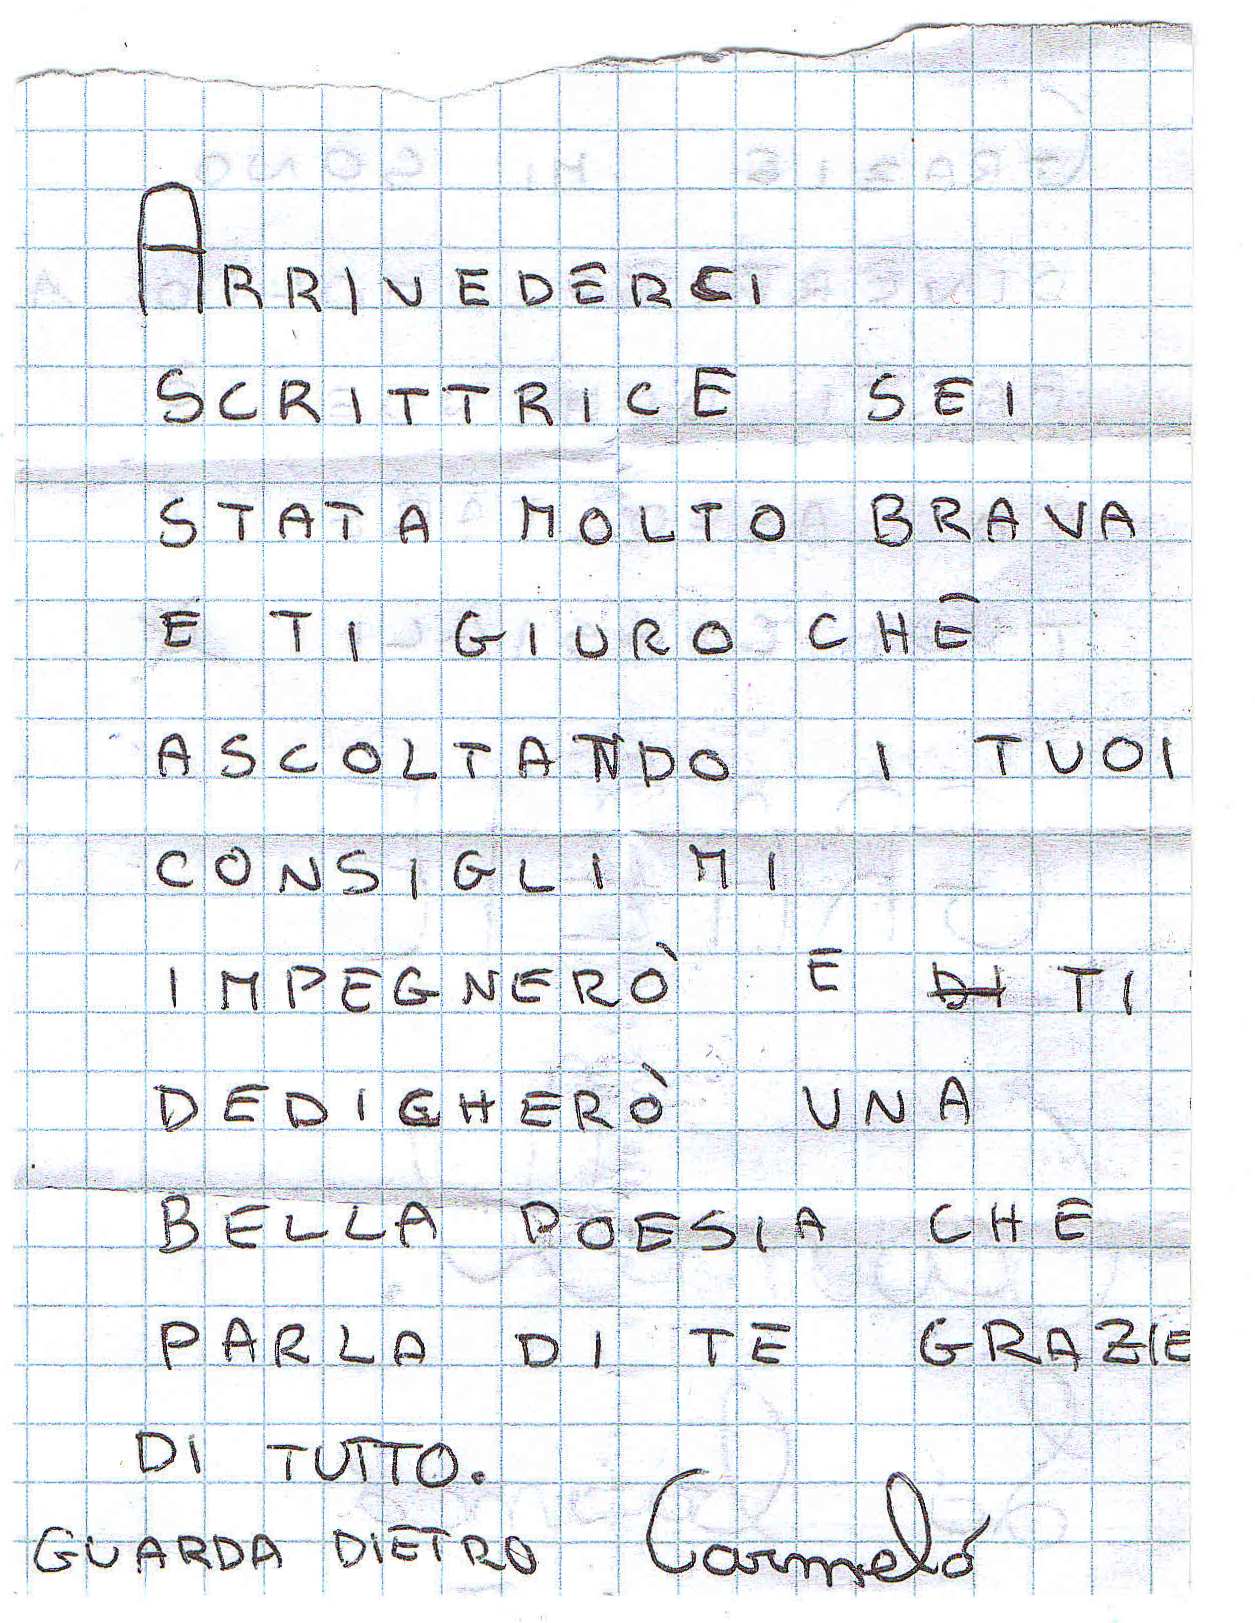 ARRIVEDERCI
SCRITTRICE SEI
STATA MOLTO BRAVA
E TI GIURO CHE
ASCOLTANDO I TUOI
CONSIGLI MI
IMPEGNERÒ E DI TI
DEDICHERÒ UNA
BELLA POESIA CHE
PARLA DI TE GRAZIE
DI TUTTO.
GUARDA DIETRO Carmelo